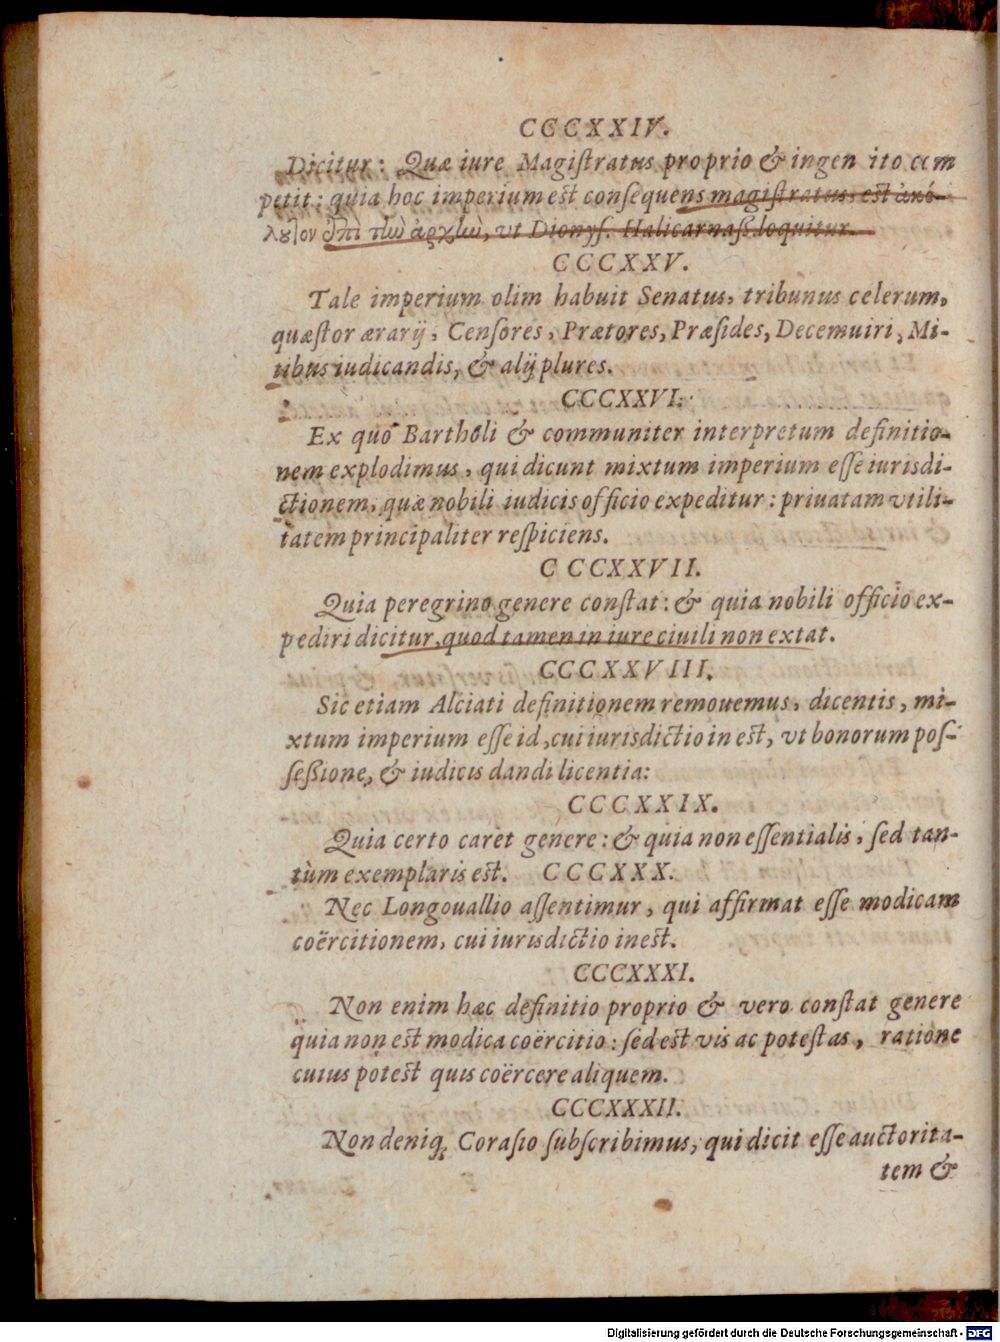 CCCXXIV.
Dicitur: Quæ iure Magiſtratus proprio & ingen ito com
petit: quia hoc imperium est conſequens magiſtratus, est ἀκό-
λουθον ἐπὶ τὼ ἀρχὼ, vt Dionyſ. Halicarnaſſ. loquitur.
CCCXXV.
Tale imperium olim habuit Senatus, tribunus celerum,
quæſtor ærarij, Cenſores, Prætores, Præſides, Decemuiri, Mi-
iudicandis, & alij plures.
CCCXXVI.
Ex quo Bartholi & communiter interpretum definitio-
nem explodimus, qui dicunt mixtum imperium eſſe iurisdi-
ctionem, quæ nobili iudicis officio expeditur: priuatam vtili-
tatem principaliter reſpiciens.
CCCXXVII.
Quia peregrino genere conſtat: & quia nobili officio ex-
pediri dicitur, quod tamen in iure ciuili non extat.
CCCXXVIII.
Sic etiam Alciati definitionem remouemus, dicentis, mi-
xtum imperium eſſe id, cui iurisdictio in est, vt bonorum poſ-
ſeßione, & iudicis dandi licentia:
CCCXXIX.
Quia certo caret genere: & quia non eſſentialis, ſed tan-
tùm exemplaris est. CCCXXX.
Nec Longouallio aſſentimur, qui affirmat eſſe modicam
coërcitionem, cui iurisdictio inest.
CCCXXXI.
Non enim hæc definitio proprio & vero conſtat genere
quia non est modica coërcitio: ſed est vis ac poteſtas, ratione
cuius potest quis coërcere aliquem.
CCCXXXII.
Non deniq, Coraſio ſubſcribimus, qui dicit eſſe auctorita-
tem &
Digitalisierung gefördert durch die Deutsche Forschungsgemeinschaft - DFG